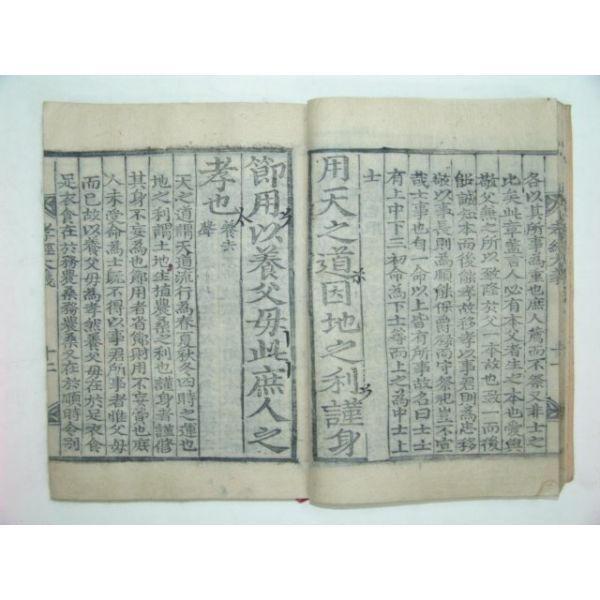 孝經大義
十一
各以其所事為重也庶人薦而不祭又非士之
比矣此章並言人必有本父者生之本也愛與
敬父兼之所以致隆於父一本故也致一而後
能誠知本而後能孝故移孝以事君則為忠移
敬以事長則為順能保爵祿而守祭祀豈不宜
哉士事也有一命以上皆有所事故名曰士士
有上中下三初命為下士等而上之為中士上
士
用天之道因地之利謹身
節用以養父母此庶人之
孝也
養去
聲
天之道謂天道流行為春夏秋冬四時之運也
地之利謂土地生植農桑之利也謹身者謹修
其身不妄為也節用者省節財用不妄費也庶
人未受命為士既不得以事君所事者惟父母
而已故以養父母為孝然養父母在於足衣食
足衣食在於務農桑務農桑又在於順時令別
孝經大義
十二